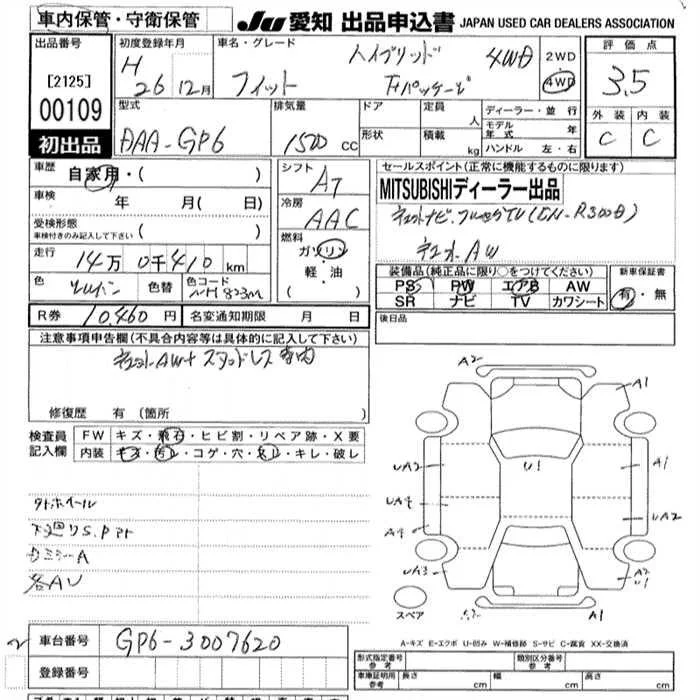 車内保管・守衛保管
JU 愛知 出品申込書 JAPAN USED CAR DEALERS ASSOCIATION
出品番号
[2125]
00109
初出品
初度登録年月
H 26年 12月
車名・グレード
ハイブリッド 4WD
フィット Fパッケージ
2WD
4WD
評価点
3.5
外装 内装
C C
型式
DAA-GP6
排気量
1500 cc
ドア
形状
定員 人
積載 kg
ディーラー・並行
モデル年式 年
ハンドル 左・右
車歴 自家用・( )
車検 年 月( 日)
受検形態
車検付きのみ記入して下さい ( )
走行 14万 0千410 km
色 シルバー 色替 色コード NH823M
シフト
AT
冷房
AAC
燃料
ガソリン
軽・油
( )
セールスポイント(正常に機能するものに限ります)
MITSUBISHIディーラー出品
AW
装備品(純正品に限り○をつけてください)
PS PW エアB AW
SR ナビ TV カワシート
新車保証書
有・無
R券 10,460 円 名変通知期限 月 日
後日品
注意事項申告欄(不具合内容等は具体的に記入して下さい)
修復歴 有 (箇所 )
検査員記入欄
FW キズ・飛石・ヒビ割・リペア跡・X要
内装 キズ・汚レ・コゲ・穴・・キレ・破レ
タトホイール
下廻りS.Pアト
ミラーA
各AU
A2
A1
UA2
U1
A1
UA2
UA3
A2
U1
スペア
A1
A-キズ E-エクボ U-凹み W-補修跡 S-サビ C-腐食 XX-交換済
車台番号 GP6-3007620
登録番号
形式指定番号 参考
類別区分番号 参考
車庫証明用 参考 長さ cm 幅 cm 高さ cm